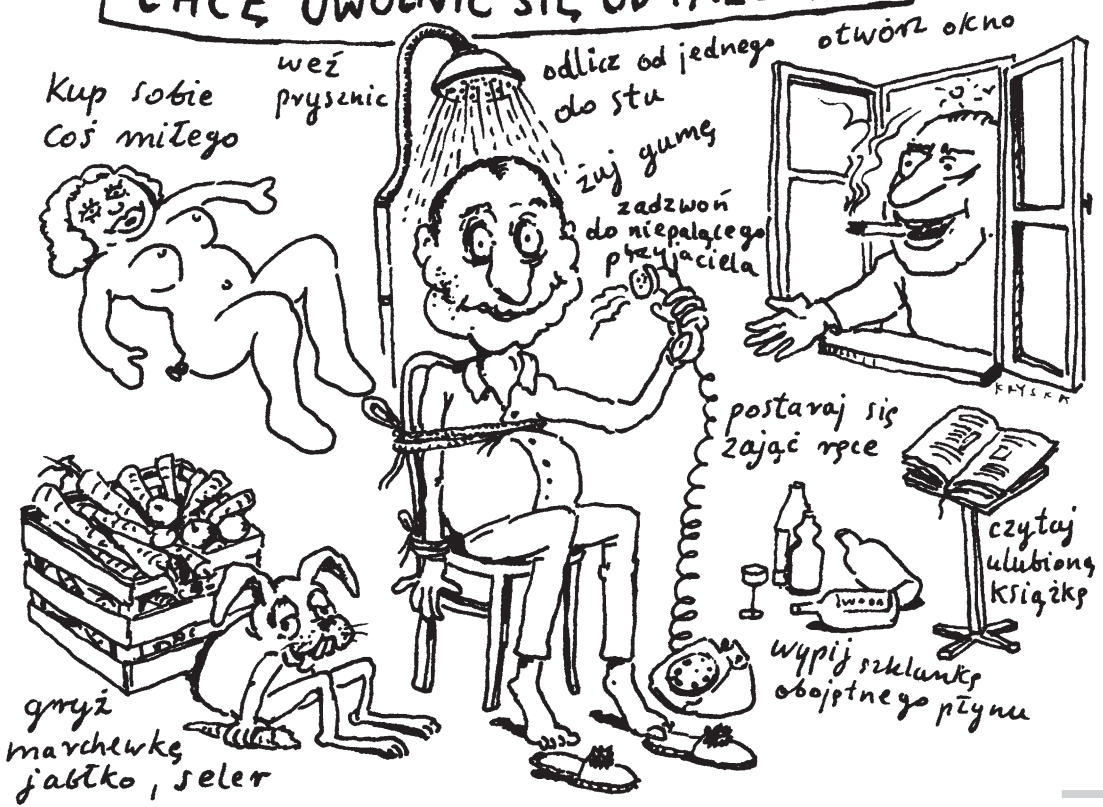 CHCĘ UWOLNIĆ SIĘ OD
weź
prysznic
odlicz od jednego
do stu
otwórz okno
Kup sobie
coś miłego
żuj gumę
zadzwoń
do niepalącego
przyjaciela
KRYSKA
postaraj się
zająć ręce
czytaj
ulubioną
książkę
wypij szklankę
obojętnego płynu
gryź
marchewkę
jabłko, seler